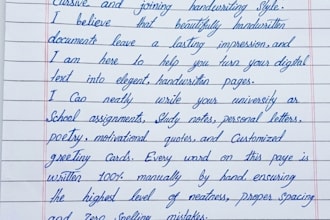 Cursive and joining handwriting style.
I believe that beautifully handwritten
documents leave a lasting impression, and
I am here to help you turn your digital
text into elegant, handwritten pages.
I Can neatly write your university or
School assignments, Study notes, personal letters,
poetry, motivational quotes, and Customized
greeting cards. Every word on this page is
written 100% manually by hand, ensuring
the highest level of neatness, proper spacing
and Zero Spelling mistakes.